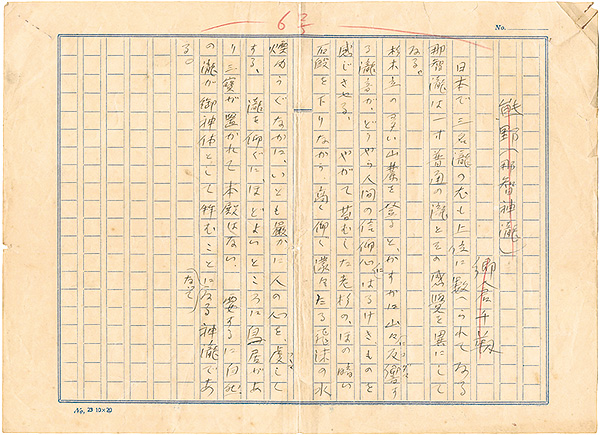 6 2/5
No.
熊野(那智神瀧)
郷倉千靱
日本で三名瀧の尤も上位に数へられてゐる
那智瀧は一寸普通の瀧とその感覚を異にして
ゐる。
杉木立の 山麓を登ると、かすかに山々に反響す
る瀧音が、どうやら人間の信仰心に はるけきものを
感じさせる。 やがて苔むした老杉の、ほの暗い
石段を下りながら 高く仰ぐ濛々たる飛沫の水
煙 なかに、いとも厳かに人の心を、虔して
する、 瀧を仰ぐにほどよいところに鳥居があ
り三宝が置かれて本殿はない。 要するに
の瀧が御神体として なって る神瀧であ
る。
No. 29 10×20